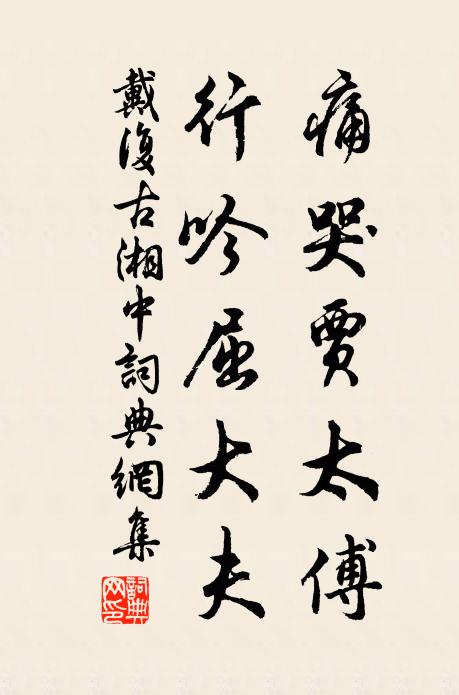 痛哭賈太傅
行吟屈大夫
戴復古湘中詞典網集
詞典网印